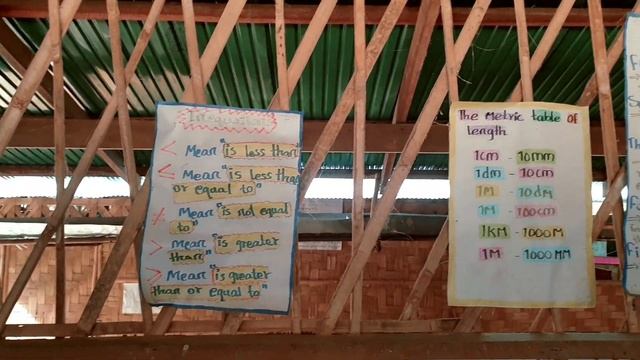 Inequation
< Mean "is less than"
≤ Mean "is less than
or equal to"
≠ Mean "is not equal
to"
> Mean "is greater
than"
≥ Mean "is greater
than or equal to"
The Metric table of
length
1cm - 10mm
1dm - 10cm
1M - 10dm
1M - 100cm
1KM - 1000M
1M - 1000MM